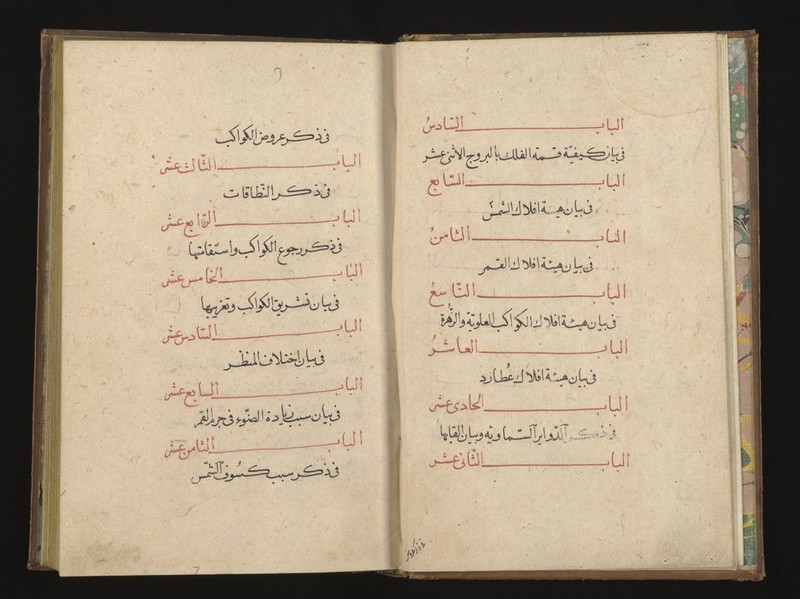 الباب السّادسُ
فى بيان كيفيّة قسمة الفلك بالبروج الاثنى عشر
الباب السّابع
فى بيان هيئة افلاك الشمس
الباب الثامنُ
فى بيان هيئة افلاك القمر
الباب التّاسعُ
فى بيان هيئة افلاك الكواكب العلويّة والزُّهرة
الباب العاشرُ
فى بيان هيئة افلاك عُطارد
الباب الحادى عشر
فى ذكر الدّواير السّماويّه وبيان القابها
الباب الثّانى عشر
فى ذكر عروض الكواكب
الباب الثّالث عشر
فى ذكر النّطاقات
الباب الرّابع عشر
فى ذكر رجوع الكواكب واستقامتها
الباب الخامس عشر
فى بيان تشريق الكواكب وتغريبها
الباب السّادس عشر
فى بيان اختلاف المنظر
الباب السابع عشر
فى بيان سبب زيادة الضّوء فى جرم القمر
الباب الثامن عشر
فى ذكر سبب كسُوف الشّمس